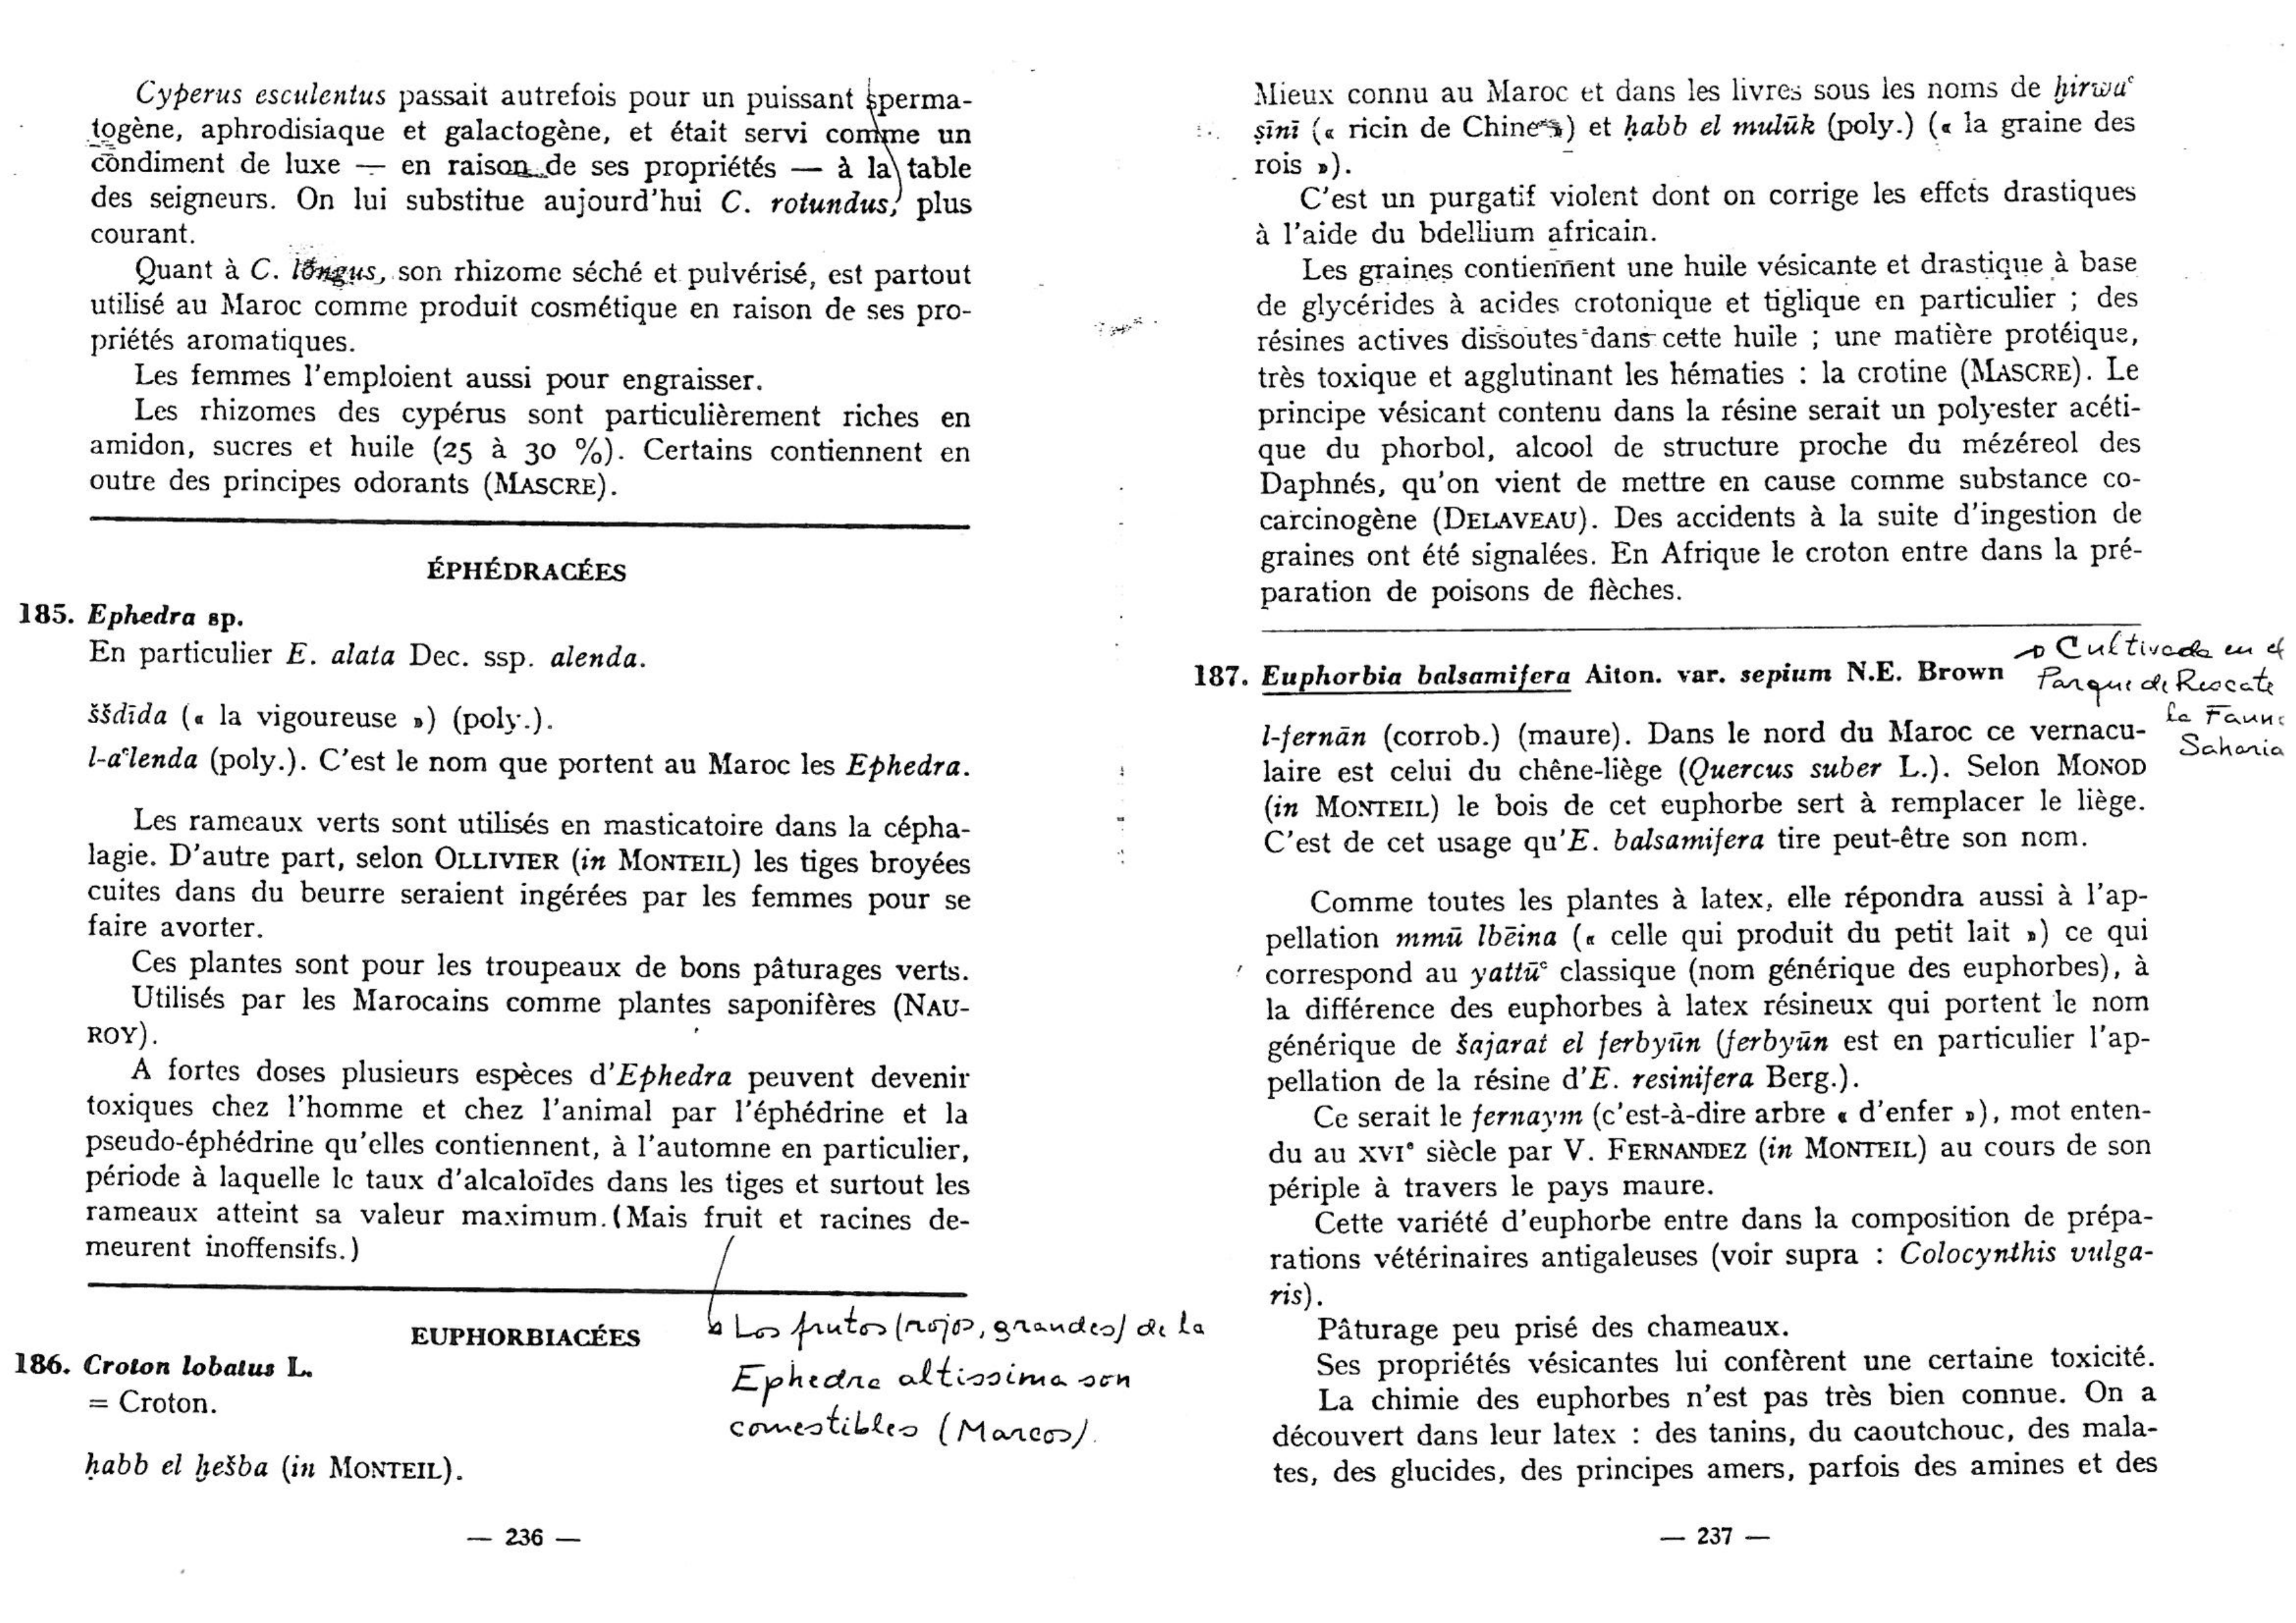 Cyperus esculentus passait autrefois pour un puissant sperma-
togène, aphrodisiaque et galactogène, et était servi comme un
condiment de luxe — en raison de ses propriétés — à la table
des seigneurs. On lui substitue aujourd'hui C. rotundus, plus
courant.
Quant à C. longus, son rhizome séché et pulvérisé, est partout
utilisé au Maroc comme produit cosmétique en raison de ses pro-
priétés aromatiques.
Les femmes l'emploient aussi pour engraisser.
Les rhizomes des cypérus sont particulièrement riches en
amidon, sucres et huile (25 à 30 %). Certains contiennent en
outre des principes odorants (MASCRE).
ÉPHÉDRACÉES
185. Ephedra sp.
En particulier E. alata Dec. ssp. alenda.
ššdīda (« la vigoureuse ») (poly.).
l-aʿlenda (poly.). C'est le nom que portent au Maroc les Ephedra.
Les rameaux verts sont utilisés en masticatoire dans la cépha-
lagie. D'autre part, selon OLLIVIER (in MONTEIL) les tiges broyées
cuites dans du beurre seraient ingérées par les femmes pour se
faire avorter.
Ces plantes sont pour les troupeaux de bons pâturages verts.
Utilisés par les Marocains comme plantes saponifères (NAU-
ROY).
A fortes doses plusieurs espèces d'Ephedra peuvent devenir
toxiques chez l'homme et chez l'animal par l'éphédrine et la
pseudo-éphédrine qu'elles contiennent, à l'automne en particulier,
période à laquelle le taux d'alcaloïdes dans les tiges et surtout les
rameaux atteint sa valeur maximum. (Mais fruit et racines de-
meurent inoffensifs.)
Los frutos (rojos, grandes) de la
Ephedra altissima son
comestibles (Marcos).
EUPHORBIACÉES
186. Croton lobatus L.
= Croton.
ḥabb el ḫešba (in MONTEIL).
— 236 —
Mieux connu au Maroc et dans les livres sous les noms de ḫirwaʿ
ṣīnī (« ricin de Chine ») et ḥabb el mulūk (poly.) (« la graine des
rois »).
C'est un purgatif violent dont on corrige les effets drastiques
à l'aide du bdellium africain.
Les graines contiennent une huile vésicante et drastique à base
de glycérides à acides crotonique et tiglique en particulier ; des
résines actives dissoutes dans cette huile ; une matière protéique,
très toxique et agglutinant les hématies : la crotine (MASCRE). Le
principe vésicant contenu dans la résine serait un polyester acéti-
que du phorbol, alcool de structure proche du mézéreol des
Daphnés, qu'on vient de mettre en cause comme substance co-
carcinogène (DELAVEAU). Des accidents à la suite d'ingestion de
graines ont été signalées. En Afrique le croton entre dans la pré-
paration de poisons de flèches.
187. Euphorbia balsamifera Aiton. var. sepium N.E. Brown
Cultivada en el
Parque de Rescate
la Fauna
Sahariana
l-fernān (corrob.) (maure). Dans le nord du Maroc ce vernacu-
laire est celui du chêne-liège (Quercus suber L.). Selon MONOD
(in MONTEIL) le bois de cet euphorbe sert à remplacer le liège.
C'est de cet usage qu'E. balsamifera tire peut-être son nom.
Comme toutes les plantes à latex, elle répondra aussi à l'ap-
pellation mmū lbēina (« celle qui produit du petit lait ») ce qui
correspond au yattūʿ classique (nom générique des euphorbes), à
la différence des euphorbes à latex résineux qui portent le nom
générique de šajarat el ferbyūn (ferbyūn est en particulier l'ap-
pellation de la résine d'E. resinifera Berg.).
Ce serait le fernaym (c'est-à-dire arbre « d'enfer »), mot enten-
du au XVIe siècle par V. FERNANDEZ (in MONTEIL) au cours de son
périple à travers le pays maure.
Cette variété d'euphorbe entre dans la composition de prépa-
rations vétérinaires antigaleuses (voir supra : Colocynthis vulga-
ris).
Pâturage peu prisé des chameaux.
Ses propriétés vésicantes lui confèrent une certaine toxicité.
La chimie des euphorbes n'est pas très bien connue. On a
découvert dans leur latex : des tanins, du caoutchouc, des mala-
tes, des glucides, des principes amers, parfois des amines et des
— 237 —